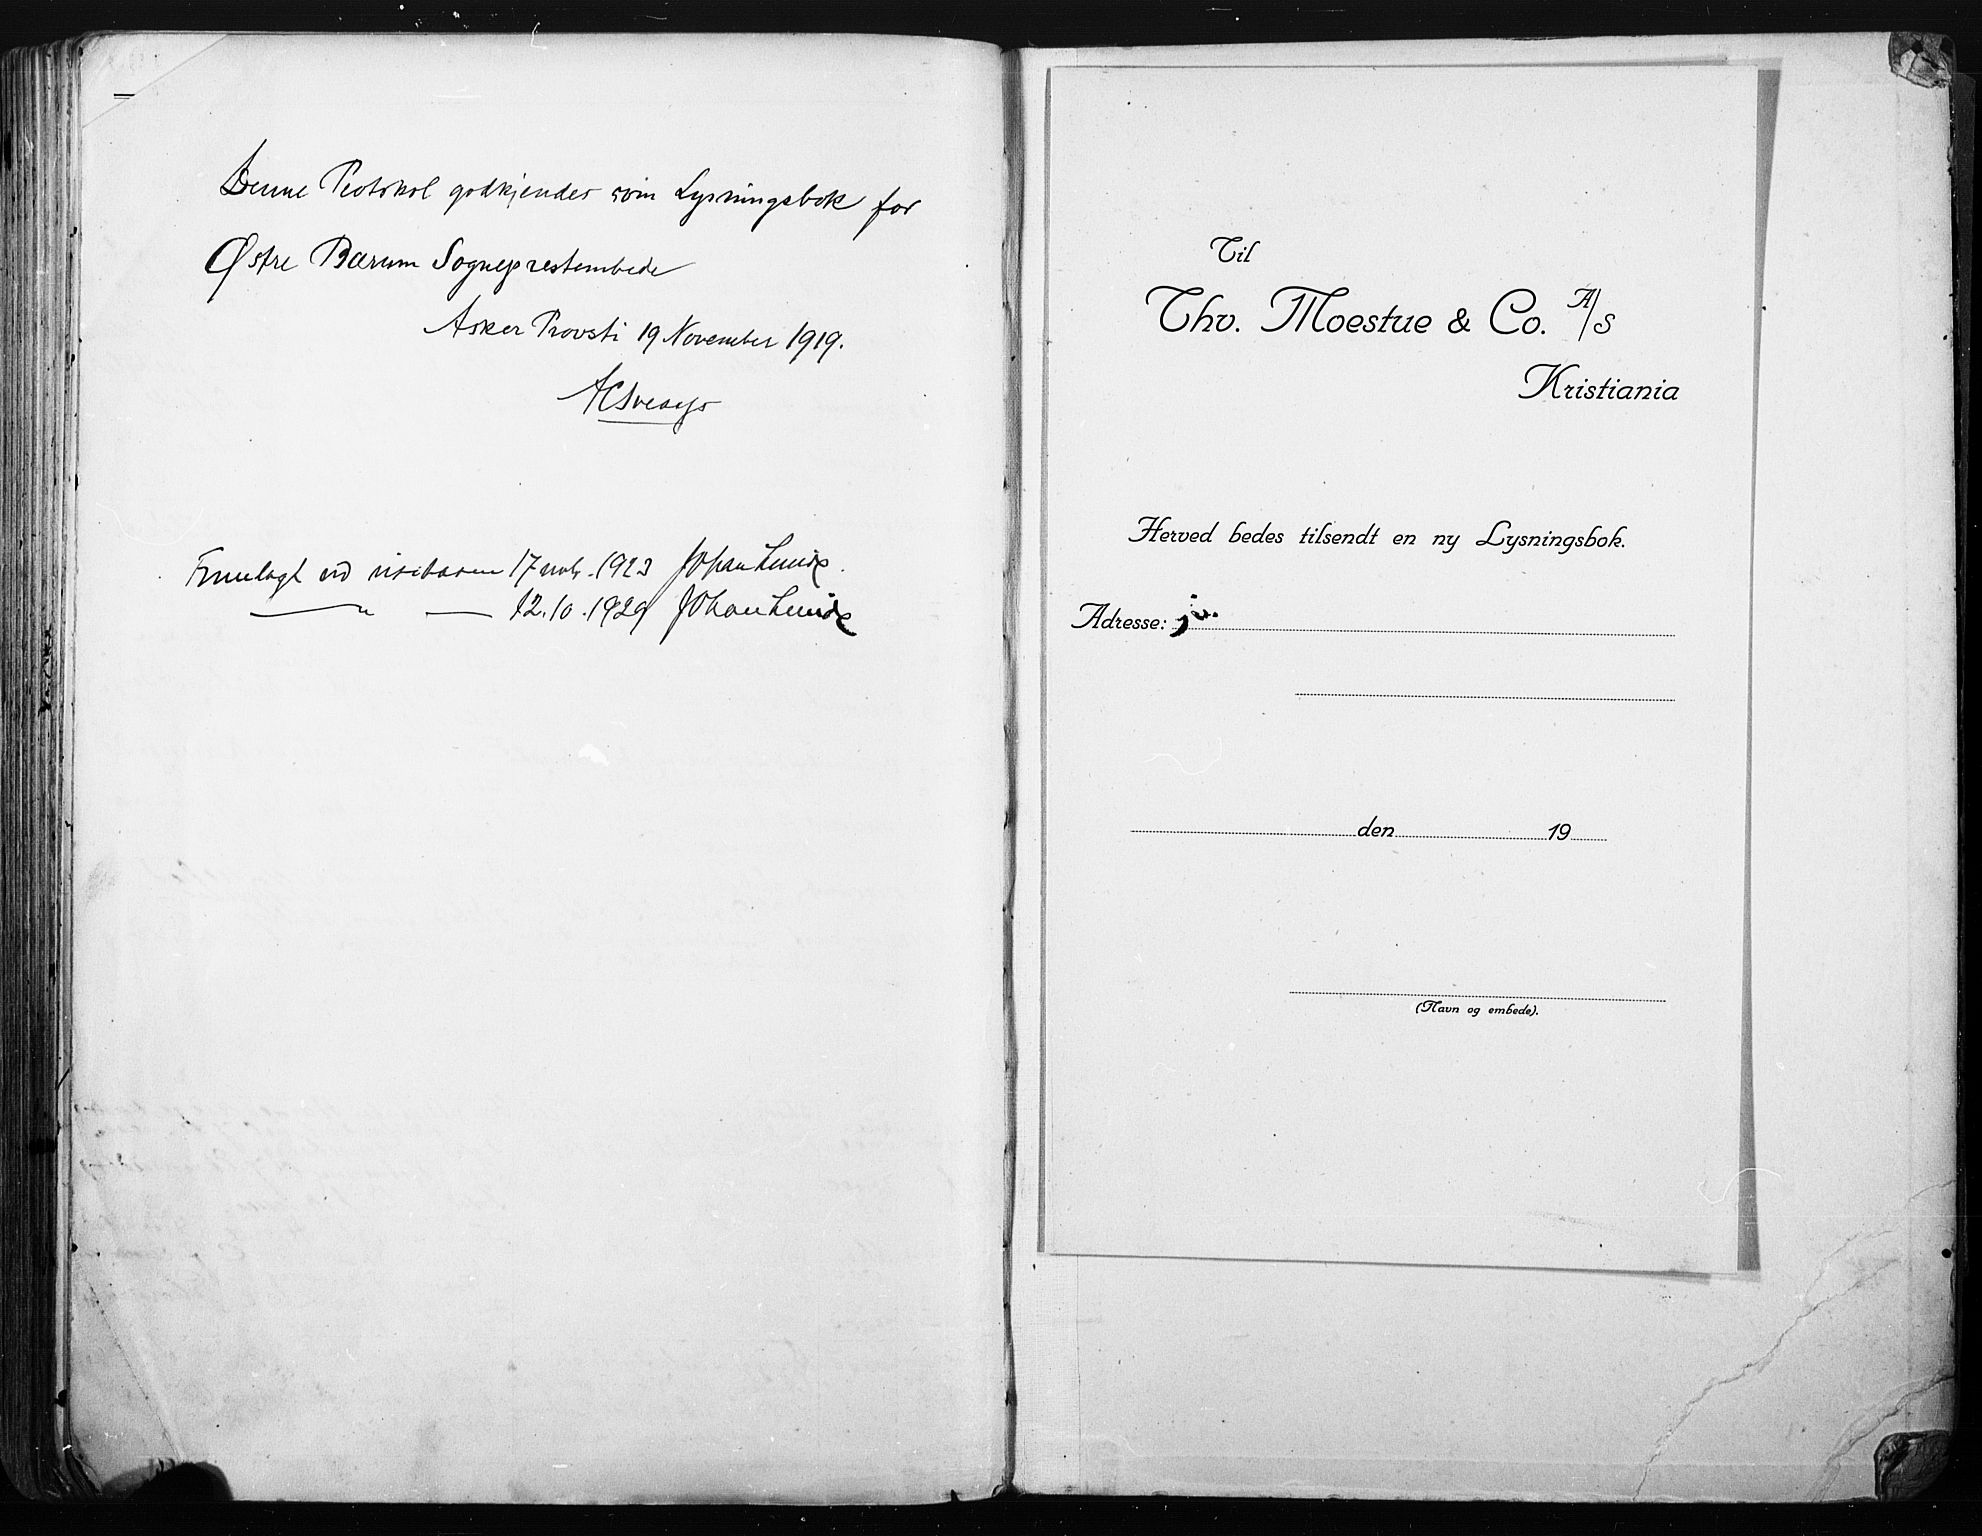 Denne Protokol godkjendes som Lysningsbok for
Østre Bærum Sogneprestembede
Asker Provsti 19 November 1919.
Fremlagt ved visitasen 17 novb. 1923 Johan Lunde.
— " — 12.10.1929 Johan Lunde
Til
Thv. Moestue & Co. A/S
Kristiania
Herved bedes tilsendt en ny Lysningsbok.
Adresse:
den 19
(Navn og embede).